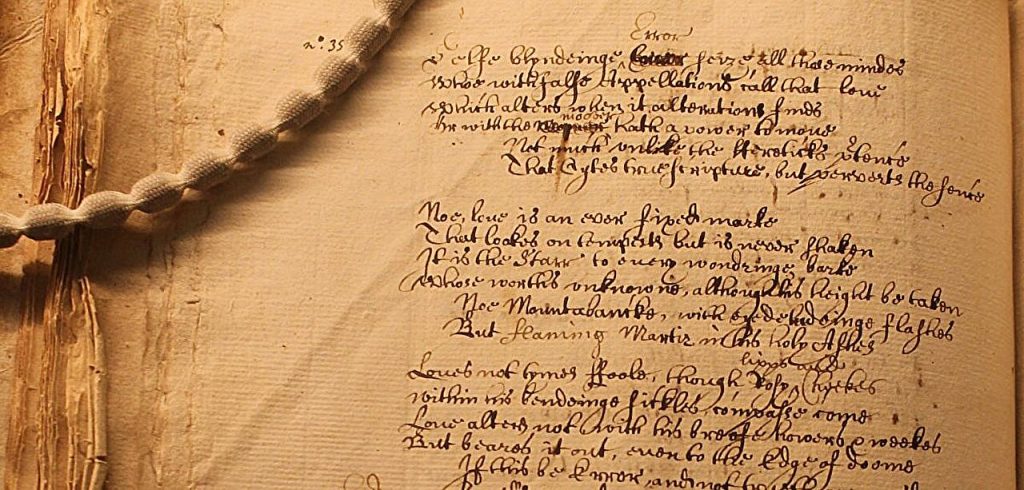 no. 35
Error
Selfe blyndeinge seize all those mindes
Who with false Appellations call that love
Which alters when it alterations finds
moover
Or with the hath a power to move
Not much vnlike the Hereticks ptence
That Cytes true Scripture, but perverts the sence
Noe, love is an ever fixed marke
That lookes on tempests but is never shaken
It is the Starr to every wondringe barke
Whose worths vnknowne, although his height be taken
Noe Mountabancke, with eye deludeinge flashes
But flaming Martir in his holy Ashes
lipps and
Loves not tymes ffoole, though Rosy Cheekes
within his bendeinge sickles compasse come
Love alters not with his breife howers & weekes
But beares it out, even to the Edge of doome
If this be Error, and not